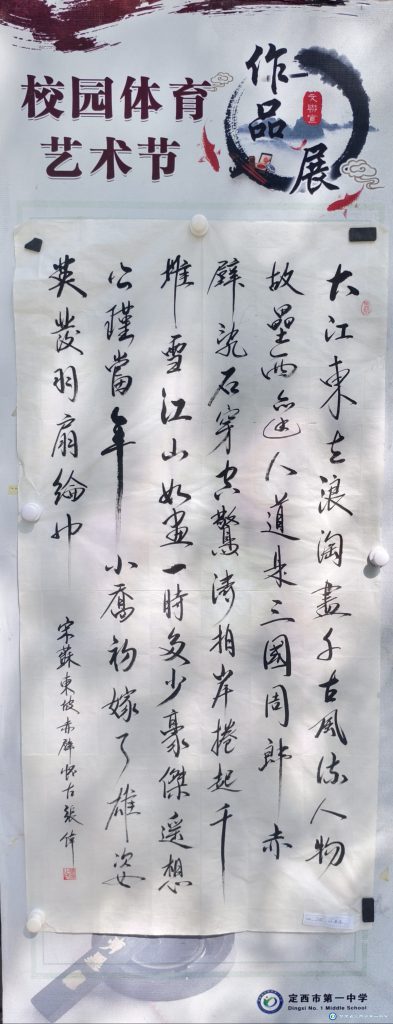 校园体育
艺术节
作品展
大江東去浪淘盡千古風流人物
故壘西邊人道是三國周郎赤
壁亂石穿空驚濤拍岸捲起千
堆雪江山如畫一時多少豪傑遥想
公瑾當年小喬初嫁了雄姿
英發羽扇綸巾
宋蘇東坡赤壁懷古張偉
定西市第一中学
Dingxi No. 1 Middle School